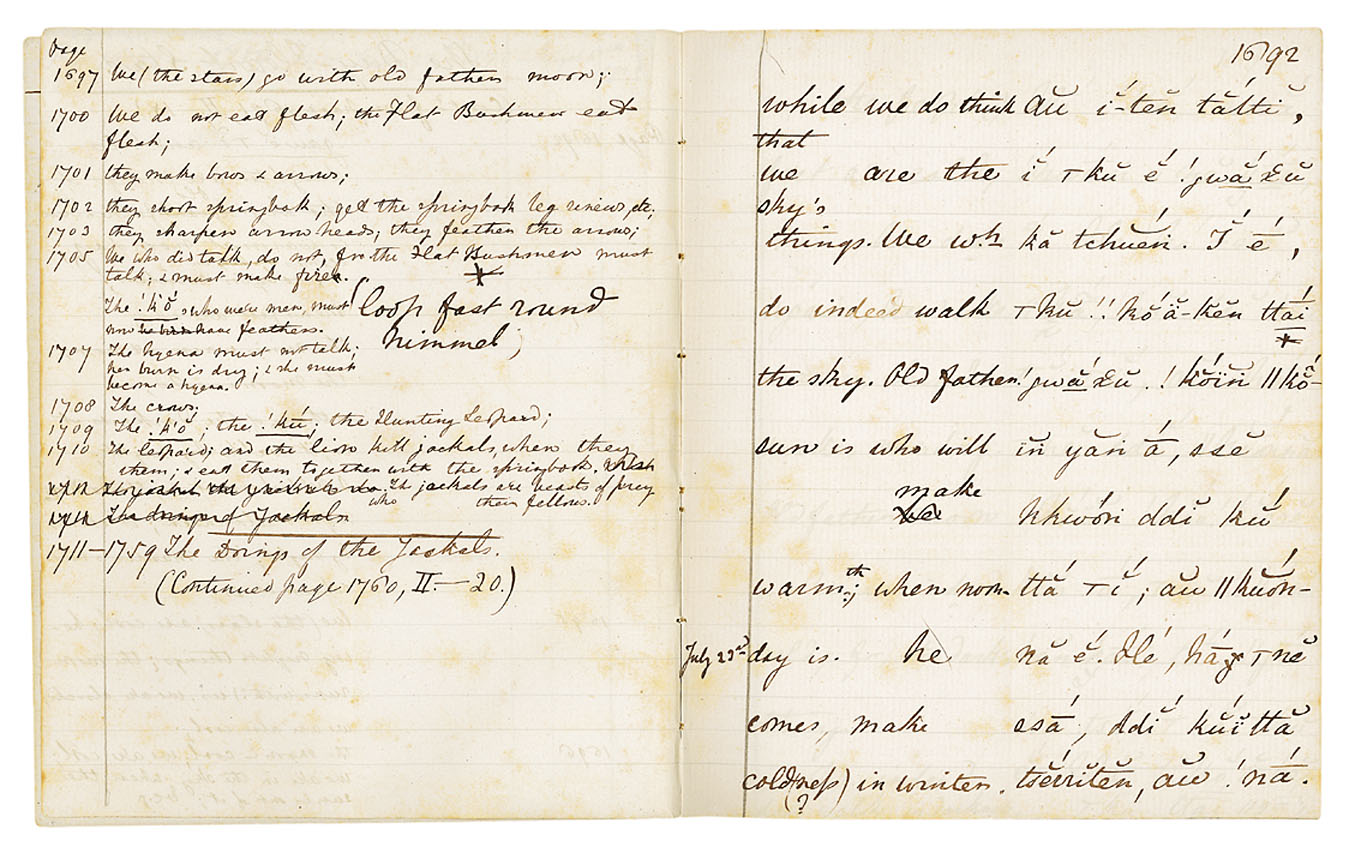 Page
1697 We (the stars) go with old father moon;
1700 We do not eat flesh; the Flat Bushmen eat
flesh;
1701 they make bows & arrows;
1702 they shoot springbok; get the springbok leg sinews, etc;
1703 they sharpen arrow heads; they feather the arrows;
1705 We who did talk, do not, for the Flat Bushmen must
talk; & must make fires.
The !k'ŏ́, who were men, must
now have feathers.
loop fast round
himmel;
1707 The hyena must not talk;
her burn is dry; & she must
become a hyena.
1708 The crows;
1709 The !k'ŏ́; the !kŭ́; the Hunting Leopard;
1710 The leopard; and the lion kill jackals, when they
them; & eat them together with the springbok.
The jackals are beasts of prey
who their fellows.
1711—1759 The Doings of the Jackals.
(Continued page 1760, II.—20.)
1692
while we do think aŭ ĭ́-tĕn tắtti,
that
we are the ĭ́ ꞇkŭ ĕ́ !gwā́xŭ
sky's
things. We wh. kă tchuĕ́ń. Ĭ́ é,
do indeed walk ꞇkŭ !!kŏ́ă-kĕn ttāí
the sky. Old father !gwā́xŭ. !kŏ́ïń ||kŏ̄́-
sun is who will ĭń yăń ā́, ssĕ
make
be hhwŏ́ń ddĭ́ kŭ́
warmth; when noon- ttắ ꞇĭ́; aŭ ||kŭŏ́n-
July 23rd day is. he nă é. Hé, hā́ ꞇnĕ
comes, make ssā́, ddĭ́ kŭ́ïttă
cold(ness) in winter. tsĕ́rrĭtĕn, aŭ !nā́.
(?)